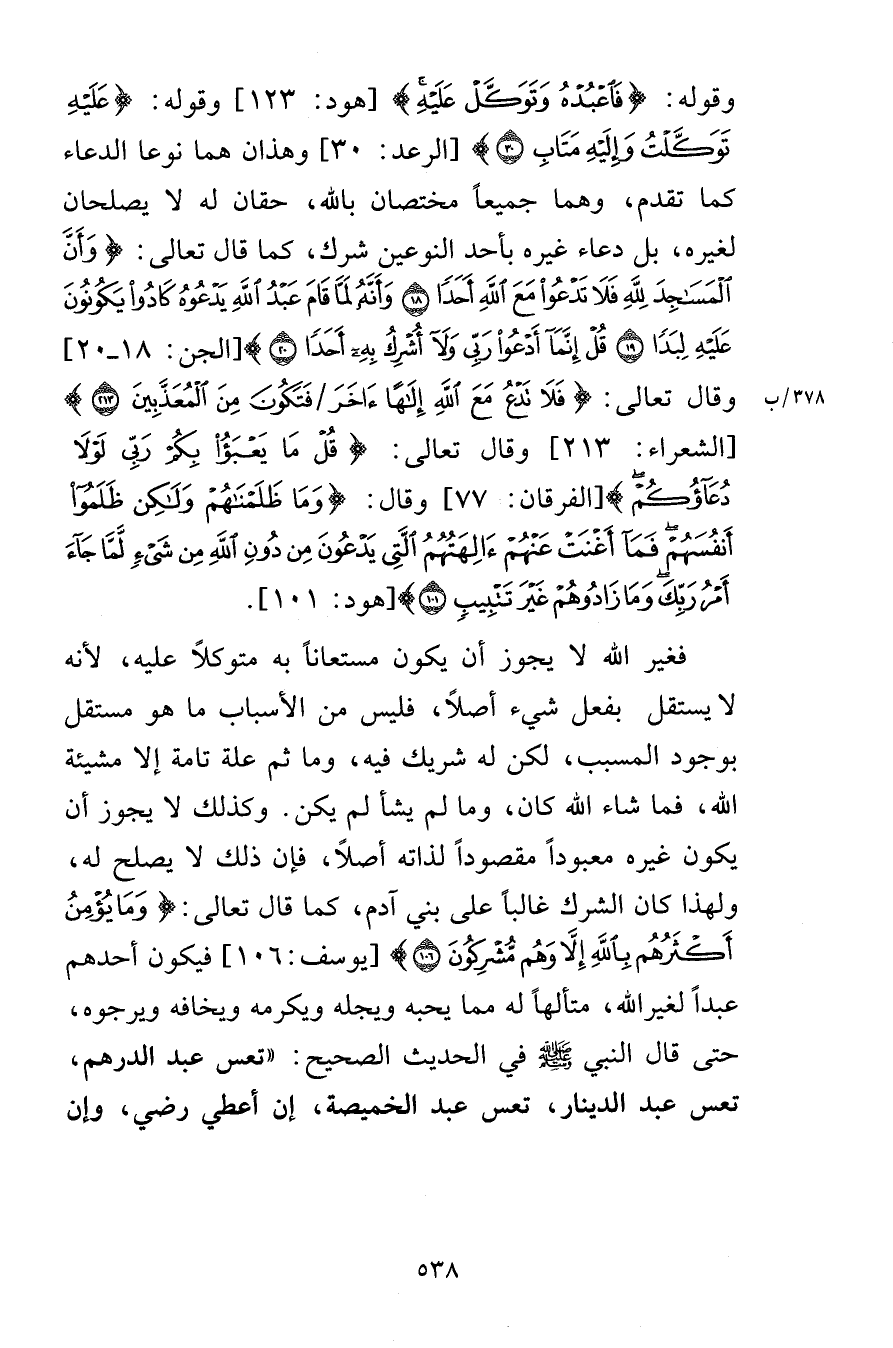 وقوله: ﴿فَٱعۡبُدۡهُ وَتَوَكَّلۡ عَلَيۡهِۚ﴾ [هود: ١٢٣] وقوله: ﴿عَلَيۡهِ
تَوَكَّلۡتُ وَإِلَيۡهِ مَتَابِ ٣٠﴾ [الرعد: ٣٠] وهذان هما نوعا الدعاء
كما تقدم، وهما جميعاً مختصان بالله، حقان له لا يصلحان
لغيره، بل دعاء غيره بأحد النوعين شرك، كما قال تعالى: ﴿وَأَنَّ
ٱلۡمَسَٰجِدَ لِلَّهِ فَلَا تَدۡعُواْ مَعَ ٱللَّهِ أَحَدٗا ١٨ وَأَنَّهُۥ لَمَّا قَامَ عَبۡدُ ٱللَّهِ يَدۡعُوهُ كَادُواْ يَكُونُونَ
عَلَيۡهِ لِبَدٗا ١٩ قُلۡ إِنَّمَآ أَدۡعُواْ رَبِّي وَلَآ أُشۡرِكُ بِهِۦٓ أَحَدٗا ٢٠﴾ [الجن: ١٨ـ٢٠]
وقال تعالى: ﴿فَلَا تَدۡعُ مَعَ ٱللَّهِ إِلَٰهًا ءَاخَرَ / فَتَكُونَ مِنَ ٱلۡمُعَذَّبِينَ ٢١٣﴾ ٣٧٨/ب
[الشعراء: ٢١٣] وقال تعالى: ﴿قُلۡ مَا يَعۡبَؤُاْ بِكُمۡ رَبِّي لَوۡلَا
دُعَآؤُكُمۡۖ﴾ [الفرقان: ٧٧] وقال: ﴿وَمَا ظَلَمۡنَٰهُمۡ وَلَٰكِن ظَلَمُوٓاْ
أَنفُسَهُمۡۖ فَمَآ أَغۡنَتۡ عَنۡهُمۡ ءَالِهَتُهُمُ ٱلَّتِي يَدۡعُونَ مِن دُونِ ٱللَّهِ مِن شَيۡءٖ لَّمَّا جَآءَ
أَمۡرُ رَبِّكَۖ وَمَا زَادُوهُمۡ غَيۡرَ تَتۡبِيبٖ ١٠١﴾ [هود: ١٠١].
فغير الله لا يجوز أن يكون مستعاناً به متوكلاً عليه، لأنه
لا يستقل بفعل شيء أصلاً، فليس من الأسباب ما هو مستقل
بوجود المسبب، لكن له شريك فيه، وما ثم علة تامة إلا مشيئة
الله، فما شاء الله كان، وما لم يشأ لم يكن. وكذلك لا يجوز أن
يكون غيره معبوداً مقصوداً لذاته أصلاً، فإن ذلك لا يصلح له،
ولهذا كان الشرك غالباً على بني آدم، كما قال تعالى: ﴿وَمَا يُؤۡمِنُ
أَكۡثَرُهُم بِٱللَّهِ إِلَّا وَهُم مُّشۡرِكُونَ ١٠٦﴾ [يوسف: ١٠٦] فيكون أحدهم
عبداً لغير الله، متألهاً له مما يحبه ويجله ويكرمه ويخافه ويرجوه،
حتى قال النبي ﷺ في الحديث الصحيح: «تعس عبد الدرهم،
تعس عبد الدينار، تعس عبد الخميصة، إن أعطي رضي، وإن
٥٣٨